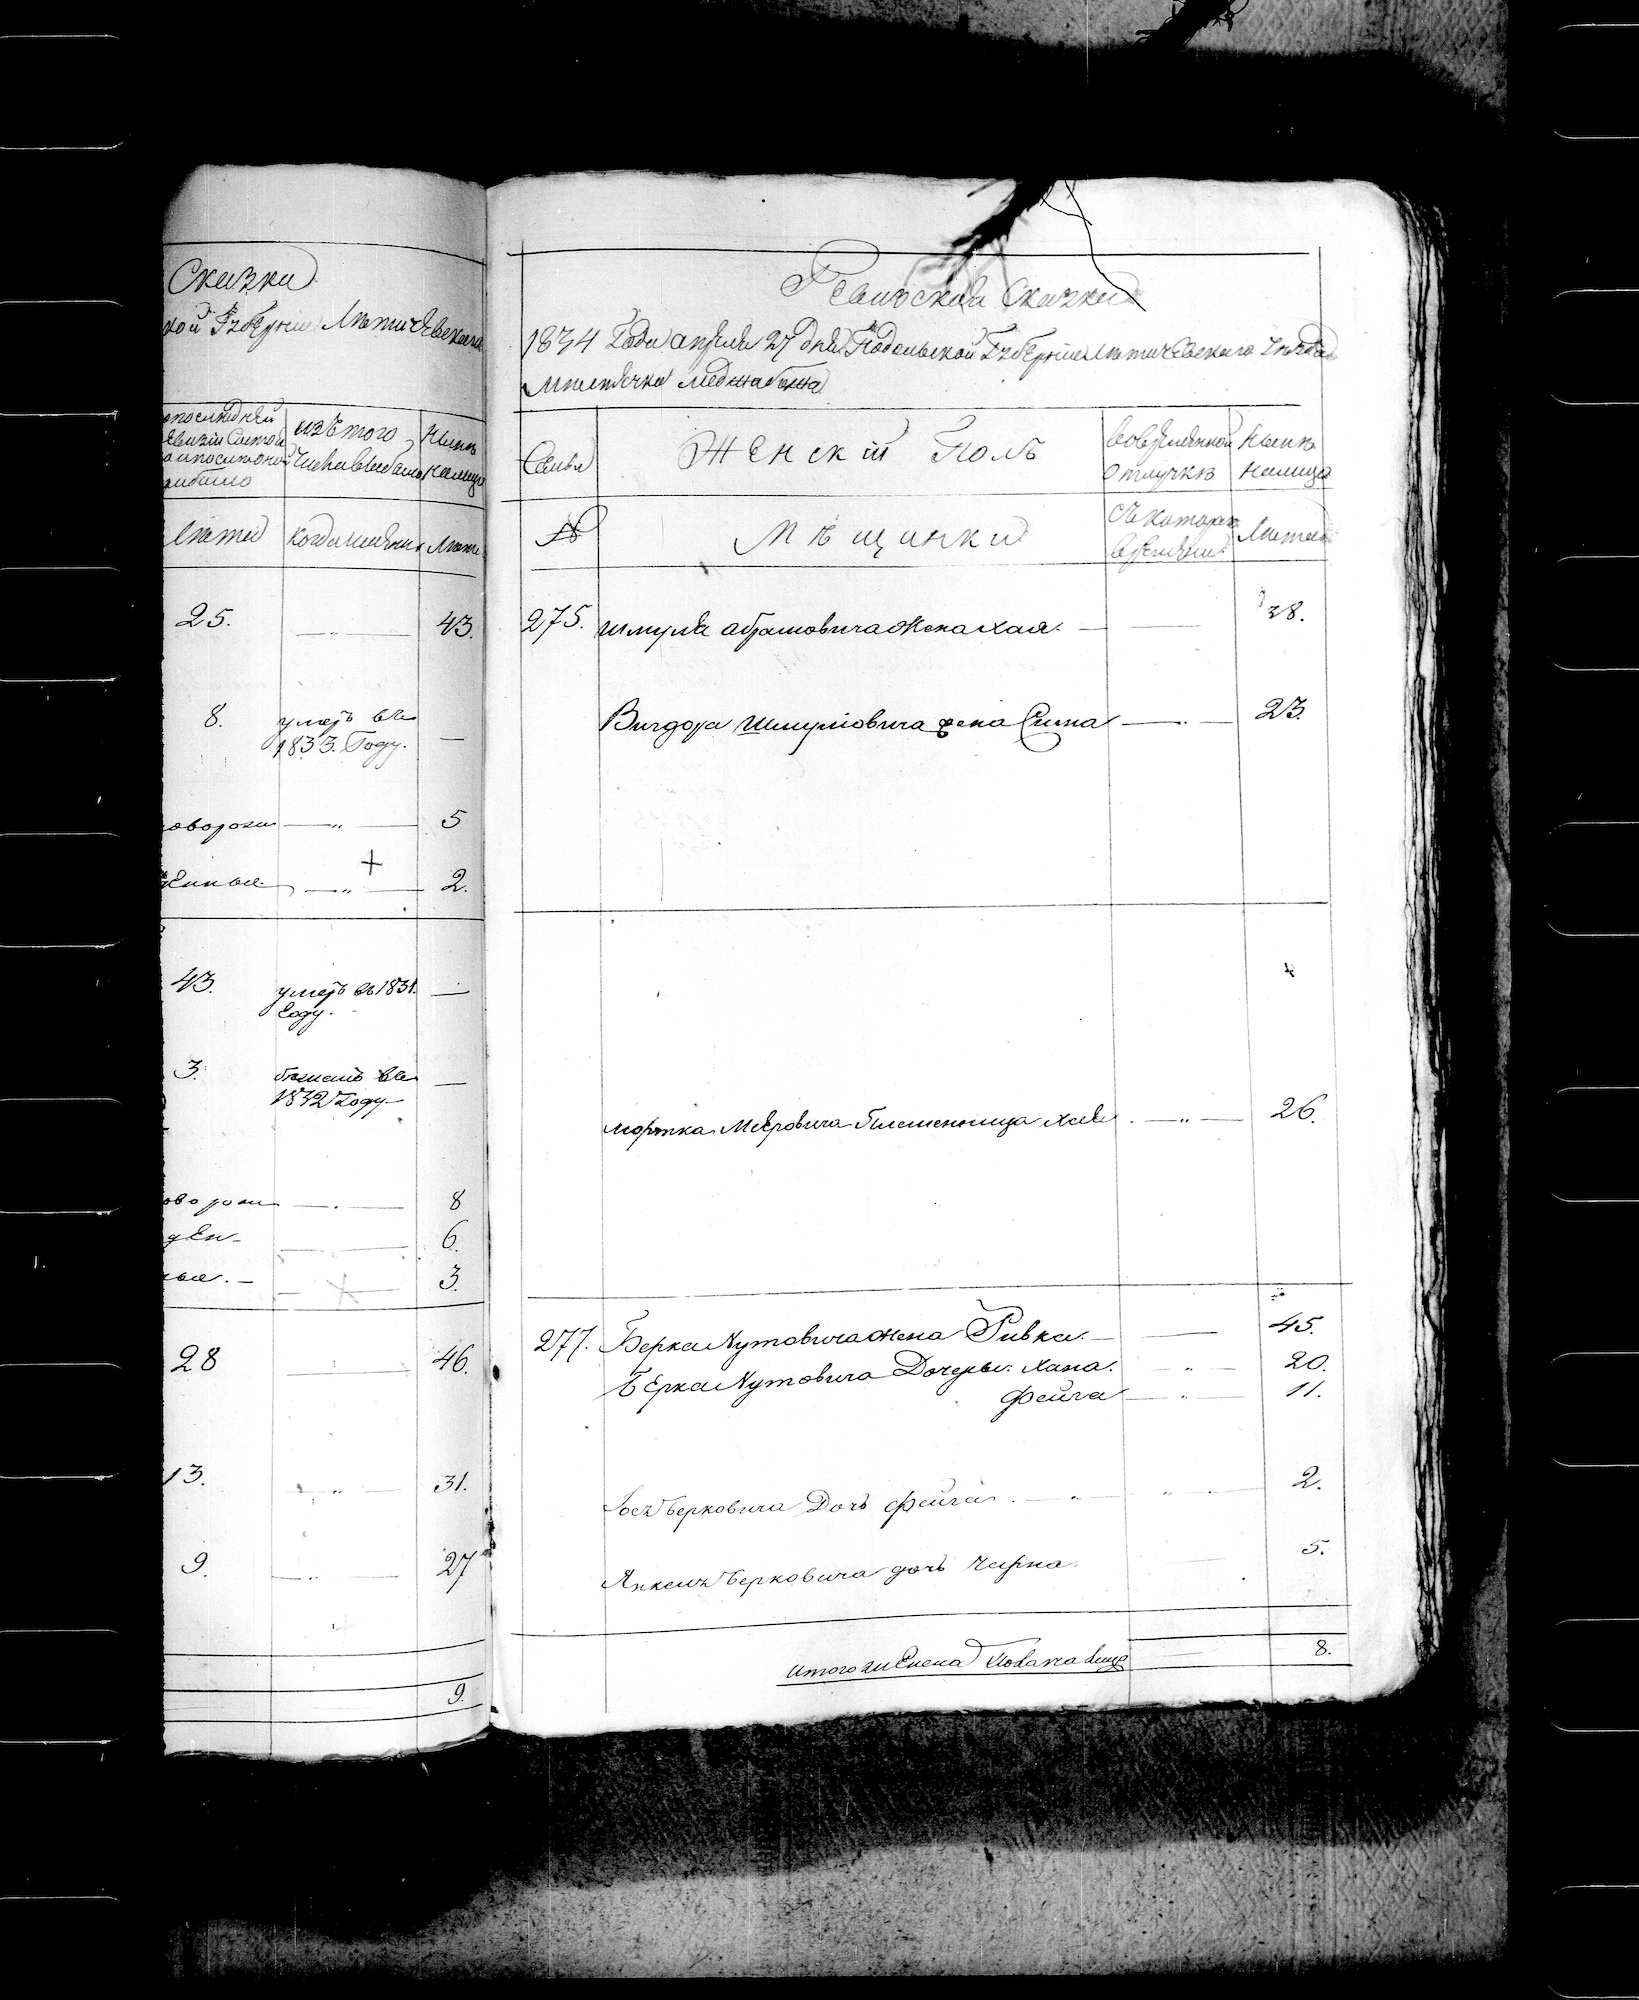 Сказка
кой Губерніи Летичевскаго
последней
изъ того
Нынѣ
на лицо
лѣта
когда именно
лѣта
25. 43.
8. умеръ въ
1833. Году. —
новорож 5
+
денные. 2.
43. умеръ въ 1831. —
Году.
3. бежалъ въ —
1832 Году
оворож 8
ден- 6.
ные. — 3.
28 46.
13. 31.
9. 27
9.
Ревизская Сказка
1834 Года апреля 27 дня Подольской Губерніи Летичевского Уезда
местечка Меджибожа
Семьи
Женскій Полъ
Во временной
отлучкѣ
Нынѣ
налицо
№
Мѣщанки
Съ которого
времени
Лѣта
275. Шмуля Абрамовича Жена Хая. — 38.
Вигдора Шмулiовича жена Сима — 23.
Мортка Мееровича Племенница Хая — 26.
277. Берка Нутовича жена Ривка. — 45.
Берка Нутовича Дочеры: Хана. 20.
Фейга 11.
Берковича Дочь Фейга. — 2.
Янкеля Берковича дочь Чарна. 5.
Итого женска Пола на лицо 8.